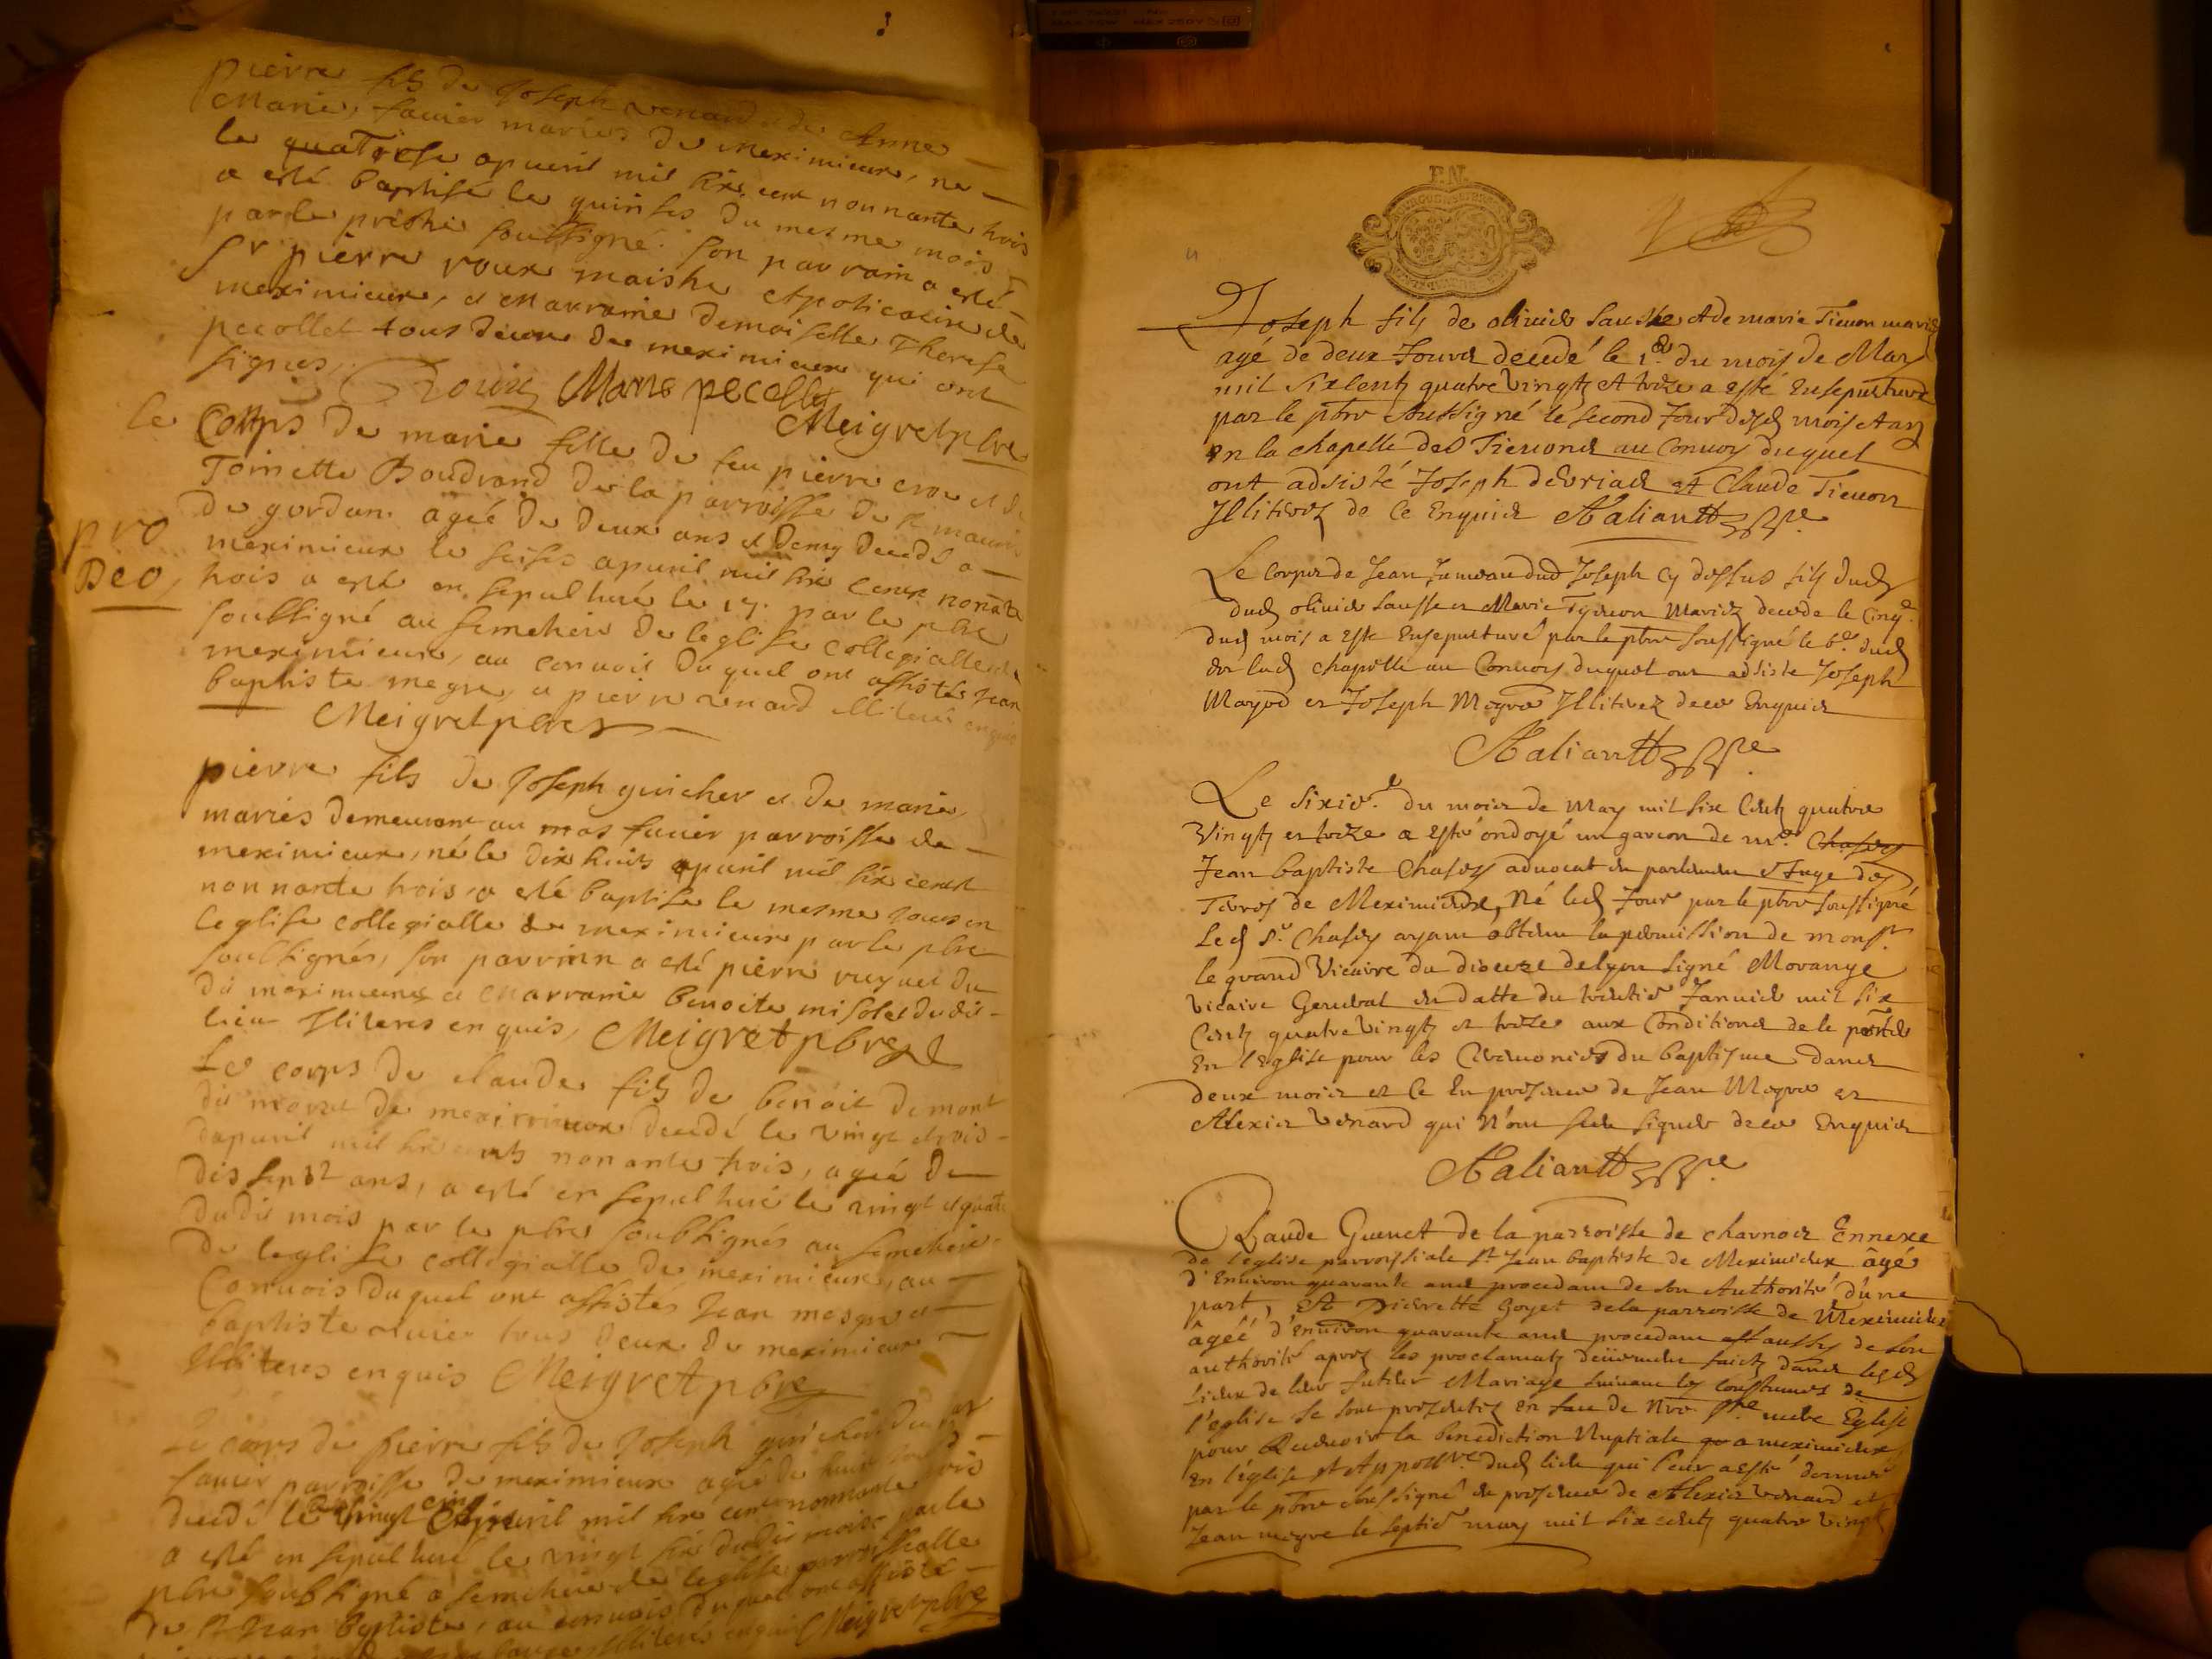 pierre fils de Joseph renard et de Anne
Marie, fauier mariés de meximieux, né
le quatorse apuril mil six cent nonnante trois
a esté baptisé le quinses du mesme mois
par le prestre soubsigné. son parrain a esté
Sr pierre roux maistre Apoticaire de
meximieux, et marraine demoiselle Therese
pecollet tous deux de meximieux qui ont
signés,
Roux Marie pecollet
Meigret pbre
le Corps de marie fille de feu pierre crou et de
Toinette Boudrand de la parroisse de St mauris
de gordan agée de deux ans et demy decede a
meximieux le seises apuril mil six cent nonāte
trois a esté en sepulturé le 17. par le pbre
soubsigné au semetiere de leglise collegialle de
meximieux, au convoir du quel ont assistés Jean
baptiste megre, et pierre renard illiterés enquis
Meigret pbre
pro
Deo,
pierre fils de Joseph guicher et de marie,
mariés demeurant au mas fauier parroisse de
meximieux, né le dix huit apuril mil six cent
nonnante trois, a esté baptise le mesme jour en
leglise collegialle de meximieux par le pbre
soubsignés, son parrain a esté pierre ruynet du
dit meximieux et marraine benoite misolet dudit
lieu Illiteres enquis, Meigret pbre
Le corps de claude fils de benoit demont
de meximieux decedé le vingt et trois
dapuril mil six cents nonante trois, agée de
dissept ans, a esté en sepulturé le vingt et quatre
dudit mois par le pbre soubsignés au semetiere
de leglise collegialle de meximieux, au
Convois du quel ont assistés Jean mesgre et
baptiste ruier tous deux de meximieux
Illiteres enquis Meigret pbre
Le corps de pierre fils de Joseph guicher du mas
fauier parroisse de meximieux agé de huit
decedé le vingt cinq apuril mil six cent nonnante trois
a esté en sepulturé le vingt six dudit mois par le
pbre soubsigné a semetiere de leglise parroissialle
de St Jean baptiste, au convois du quel ont assisté
illiterés enquis Meigret pbre
F.N.
Joseph fils de oliuier sausse et de marie Tieuon mariés
agé de deux Jours decedé le 1er du mois de May
mil sixcents quatre Vingts et treze a esté Ensepulturé
par le pbre sousigné le second Jour desd mois et an
en la chapelle des Tieuons au Conuoy duquel
ont adsisté Joseph debriac et Claude Tieuon
Illiterez de Ce Enquis Aaliantt pbre
Le corps de Jean Jumeau dud Joseph Cy dessus fils dud
dud oliuier sausse et Marie Tyeuon Mariez decede le Cinqe
dud mois a este Ensepulturé par le pbre soussigné le 6e dud
en lad chapelle au Conuoy duquel ont adsiste Joseph
Mayod et Joseph Megre Illiterez de ce Enquis
Aaliantt pbre
Le sixie. du mois de may mil six Cents quatre
Vingts et treze a esté ondoyé un garcon de mr. Chasey
Jean baptiste Chasey aduocat en parlement et Juge des
Terres de Meximieux, Né led Jour par le pbre soussigné
Led Sr. Chasey ayant obtenu la permission de monsr
le grand Vicaire du dioceze de lyon signé Morange
Vicaire General en datte du trentie Januier mil six
Cents quatre Vingts et treze aux Conditions de le porter
En l'eglise pour les Ceremonies du baptisme dans
deux mois et Ce En presence de Jean Megre et
Alexis Venard qui N'ont sceu signer de ce Enquis
Aaliantt pbre
Claude Guenet de la parroisse de charnoz Ennexe
de l'eglise parroissiale St Jean baptiste de Meximieux âgé
d'Enuiron quarante ans procedant de son Authorité d'une
part, Et Pierrette Goyet de la parroisse de Meximieux
âgéé d'Enuiron quarante ans procedant aussy de son
authorité apres les proclamats deüement faicts dans lesd
Lieux de leur futeur Mariage suiuant les Coustumes de
l'eglise se sont presentez en face de Nre Ste mere Eglise
pour Receuoir la benediction Nuptiale a meximieux
en l'église St Appostre dud lieu qui leur a esté donnée
par le pbre soussigné en presence de Alexis Venard et
Jean megre le septie may mil six cents quatre Vingt